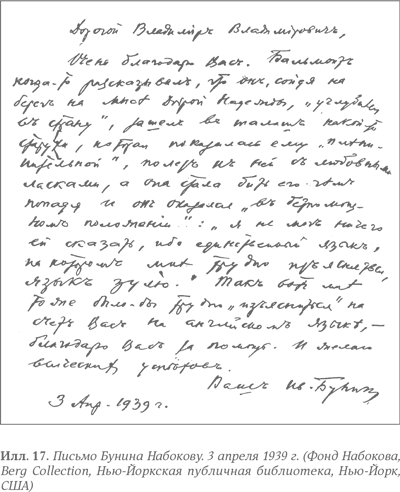 Дорогой Владимiръ Владимiровичъ,
Очень благодарю Васъ. Бальмонтъ
когда-то разсказывалъ, что онъ, сойдя на
берегъ на мысѣ Доброй Надежды, „углубился
въ страну", зашелъ въ шалашъ какой-то
старухи, которая показалась ему „плѣни-
тельной", полезъ къ ней съ любовными
ласками, а она стала бить его чѣмъ
попадя и онъ оказался „въ безпомощ-
номъ положенiи": „я не могъ ничего
ей сказать, ибо единственный языкъ,
на которомъ мнѣ трудно изъясняться,
языкъ зулю." Такъ вотъ мнѣ
тоже было-бы трудно „изъясниться" на
счетъ Васъ на англiйскомъ языкѣ, —
благодарю Васъ за помощь. И желаю
всяческихъ успѣховъ.
Вашъ Ив. Бунинъ
3 Апр. 1939 г.
Илл. 17. Письмо Бунина Набокову. 3 апреля 1939 г. (Фонд Набокова,
Berg Collection, Нью-Йоркская публичная библиотека, Нью-Йорк,
США)